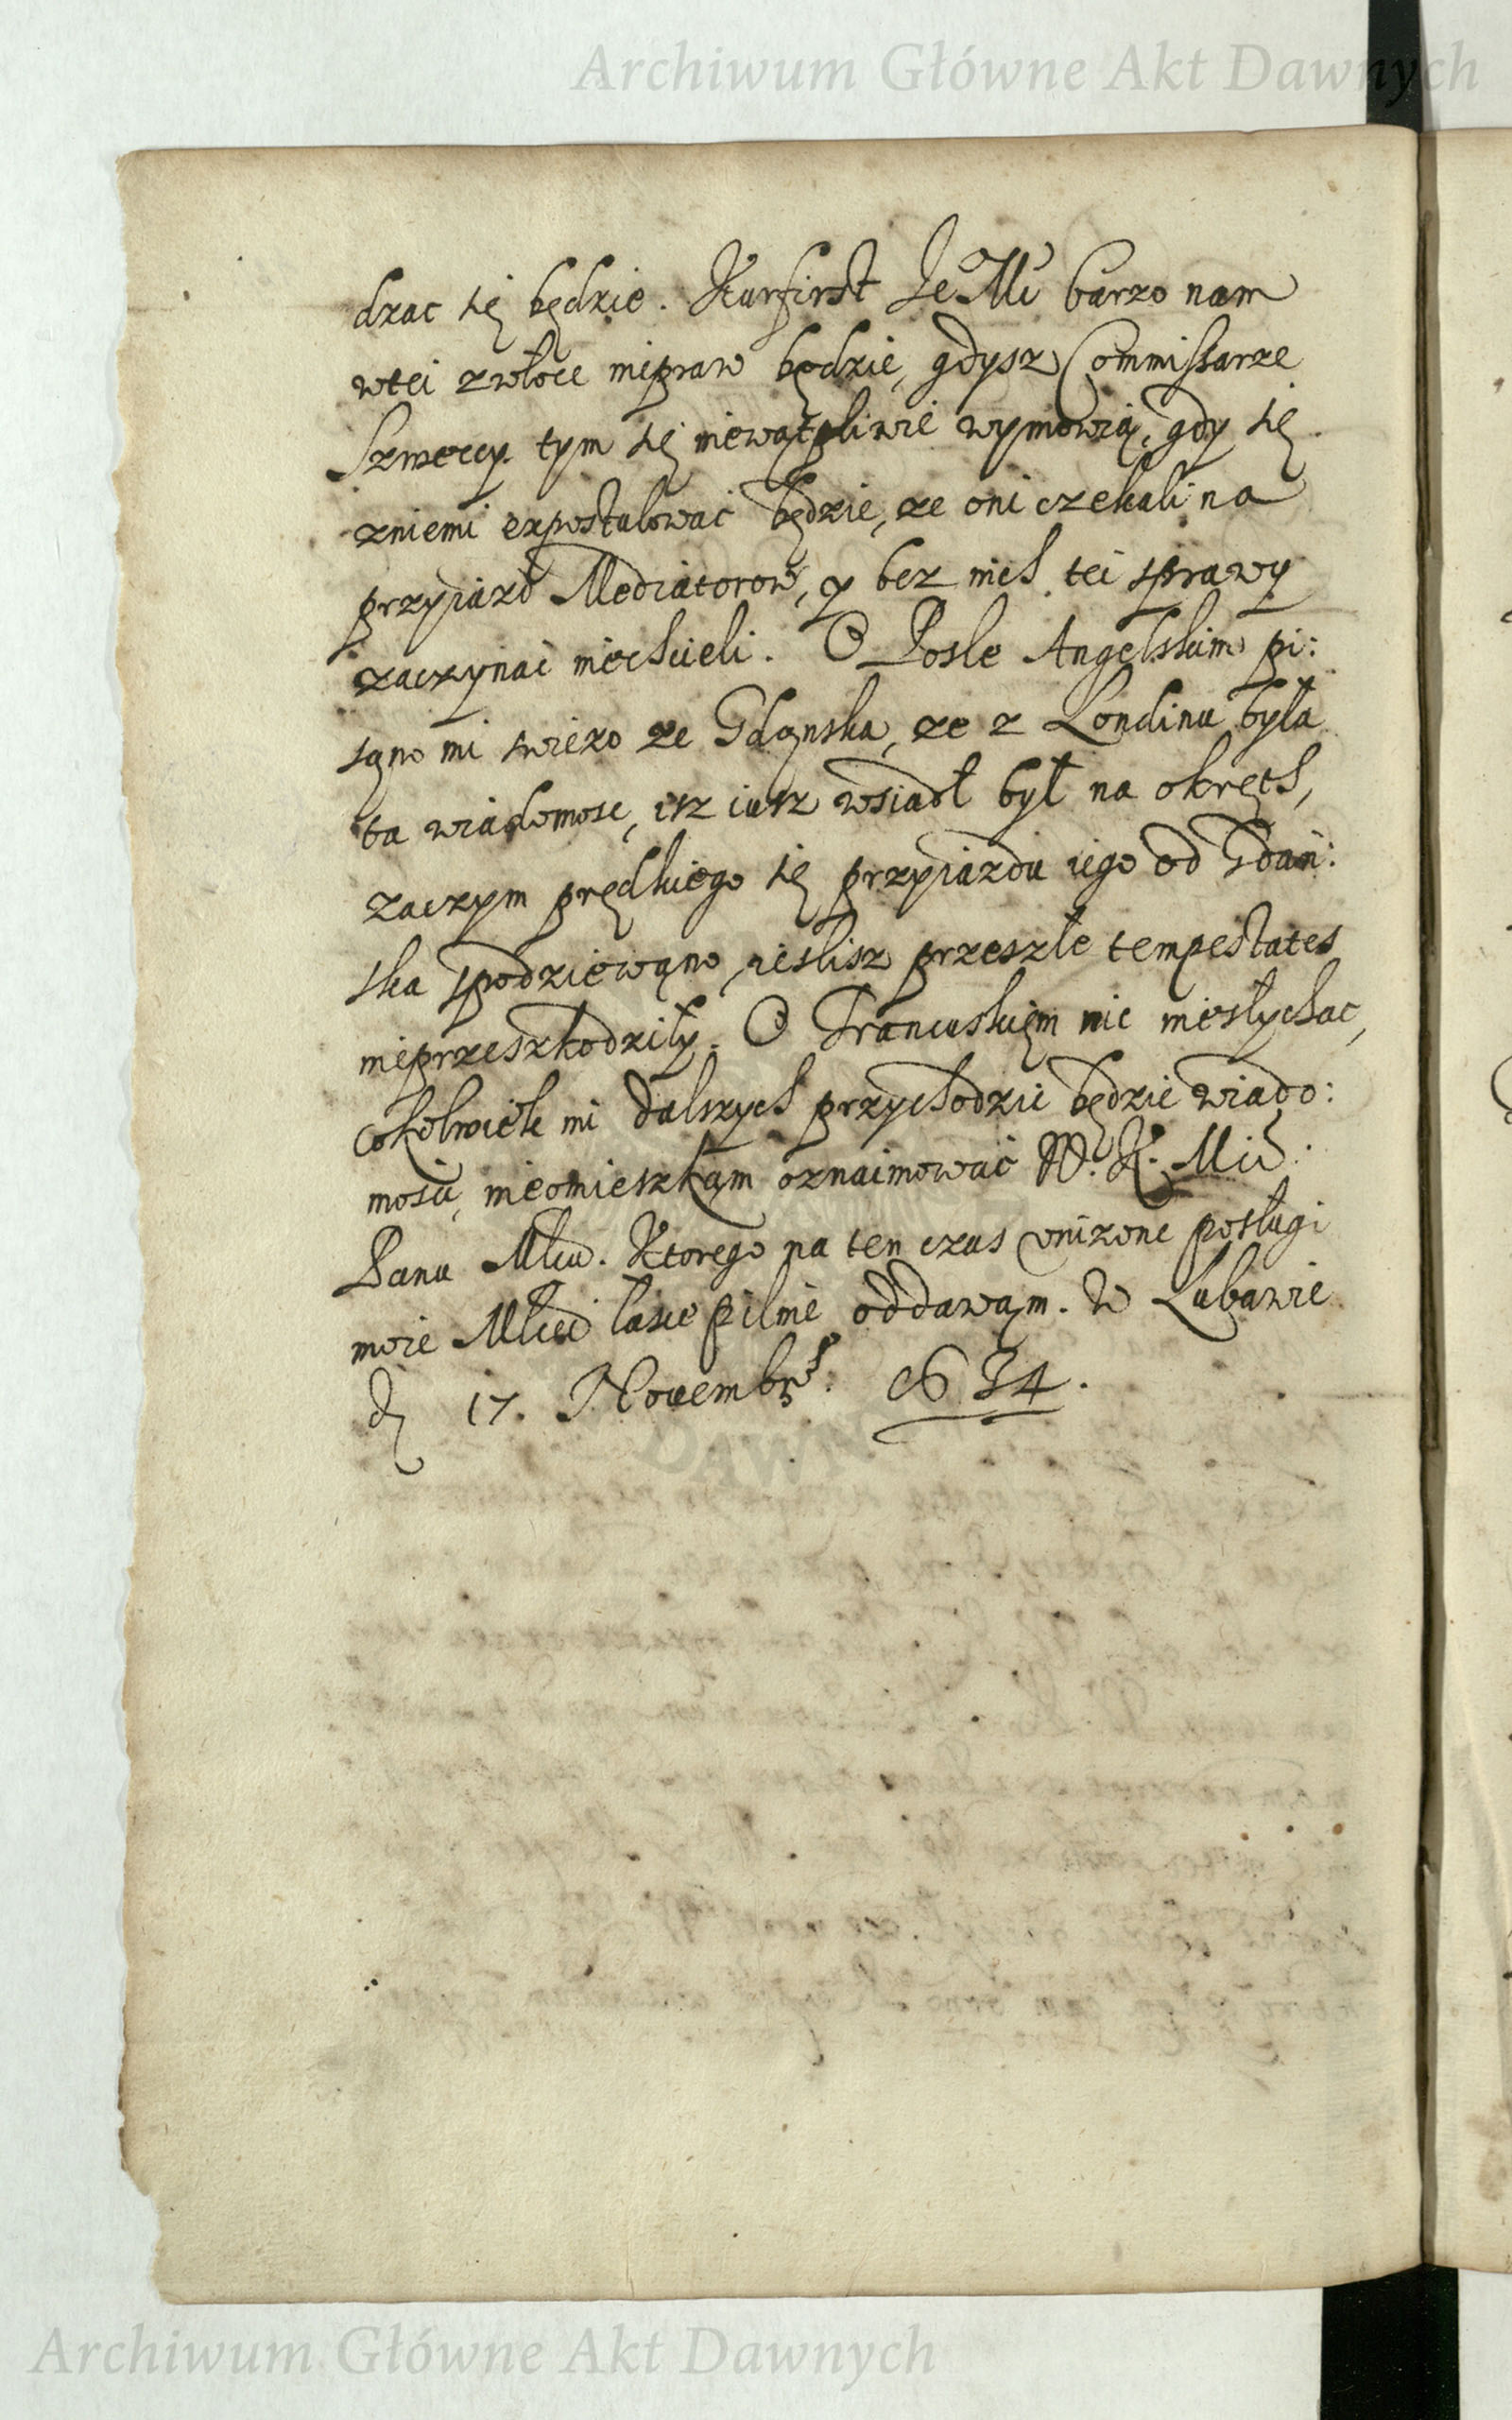 Archiwum Główne Akt Dawnych
dzac się będzie. Kurfirst Je Mć barzo nam
wtei zwłoce niepraw będzie, gdysz Commissarze
Szweccy tym się niewątpliwie wymowią, gdy się
zniemi expostulować będzie, ze oni czekali na
przyiazd Mediatorow, y bez nich tei sprawy
zaczynać niechcieli. O Posle Angelskim pi:
sąno mi swiezo ze Gdąnska, ze z Londinu była
ta wiadomosc, isz iusz wsiadł był na okręth,
zaczym prędkiego się przyiazdu iego od Gdań:
ska spodziewąno, ieslisz przeszłe tempestates
nieprzeszkodziły. O Francuskięm nic niesłychac,
cokolwiek mi dalszych przychodzic będzie wiado:
mosci, nieomieszkąm oznaimować W. K. Mći
Panu Mću. Ktorego na ten czas unizone posługi
moie Mćiwei łasce pilnie oddawąm. W Lubawie
d 17. Nouembrs. 1634.
DAWN
Archiwum Główne Akt Dawnych